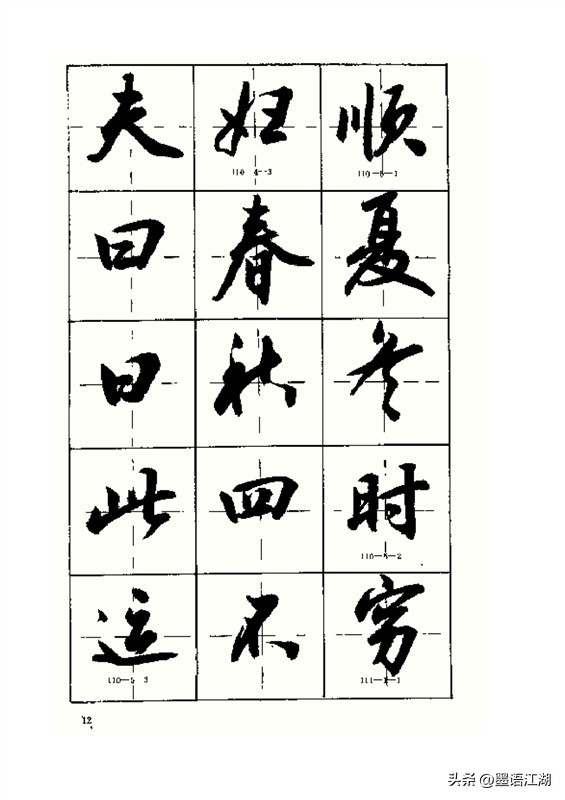 夫妇顺
110 4--3 110—5—1
曰春夏
曰秋冬
此四时
110—5—2
运不穷
110—5 3 111—1—1
12
头条 @墨语江湖